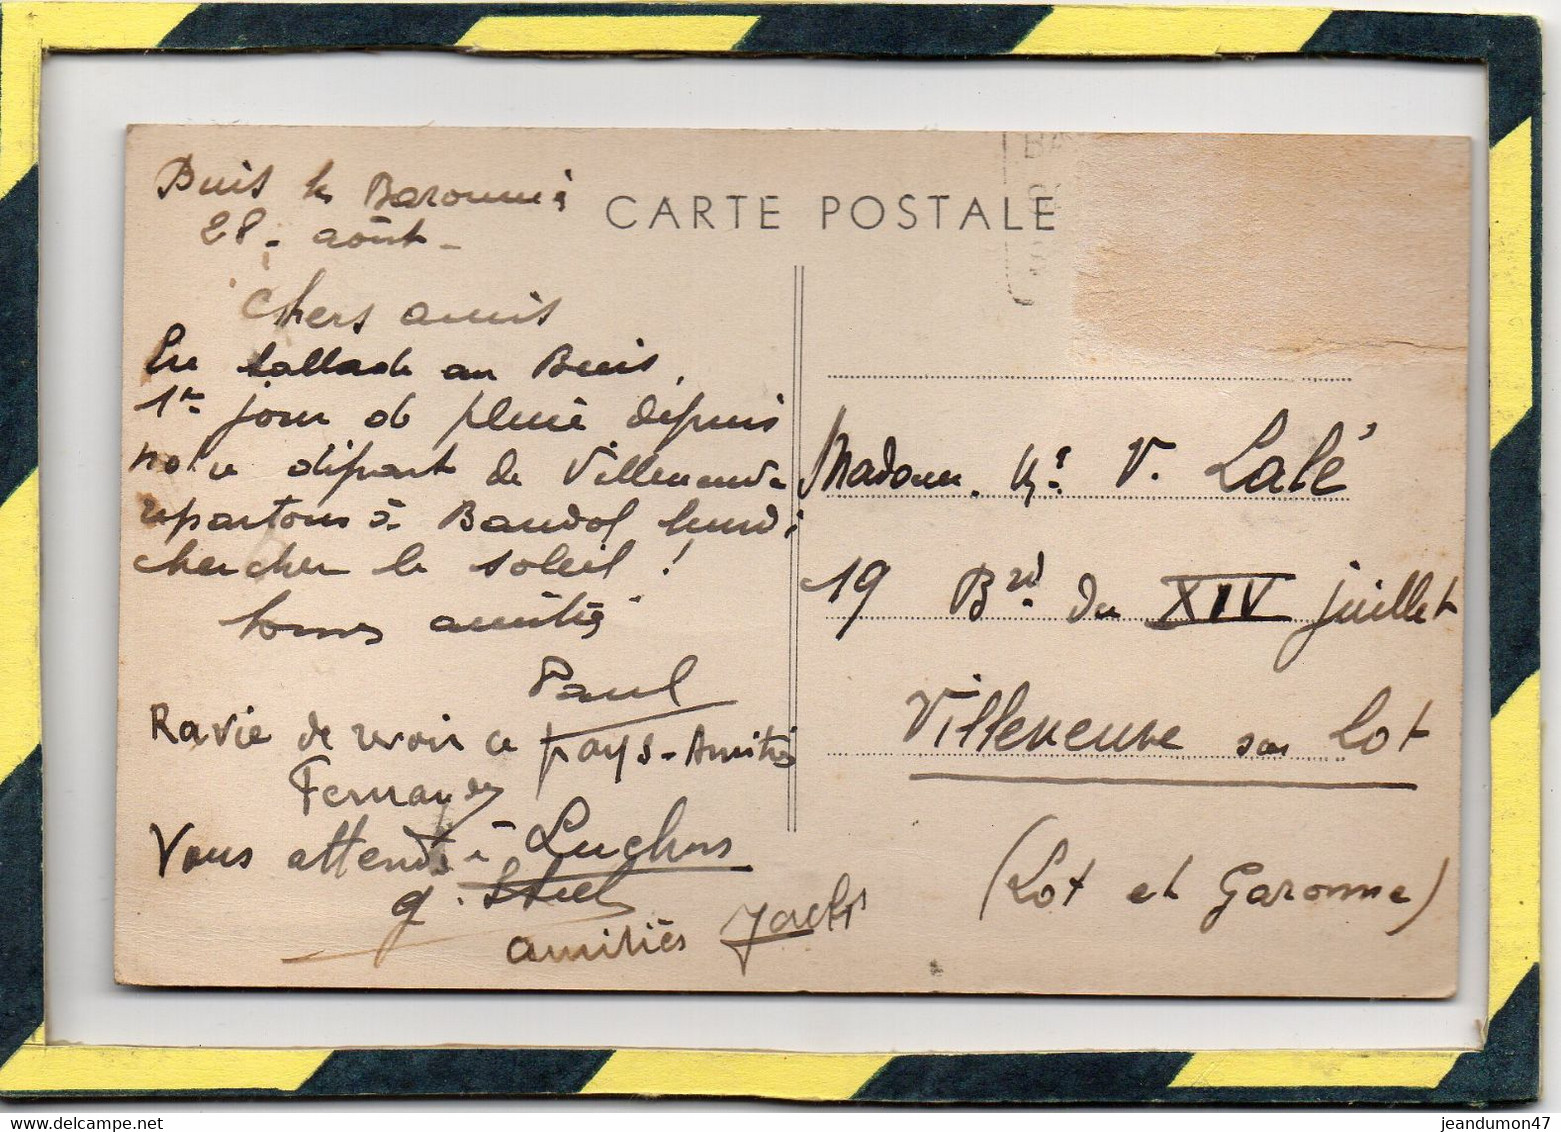 Buis les Baronnies
28. août-
CARTE POSTALE
BA
Chers amis
En ballade au Buis,
1er jour de pluie depuis
notre départ de Villeneuve
repartons à Bandol lundi
chercher le soleil !
bonnes amitiés
Paul
Ravie de revoir ce pays-Amitiés
Fernandez
Vous attends à Luchon
g.
amitiés
Madame V. Lalé
19 Brd du XIV juillet
Villeneuve sur Lot
(Lot et Garonne)
jeandumon47